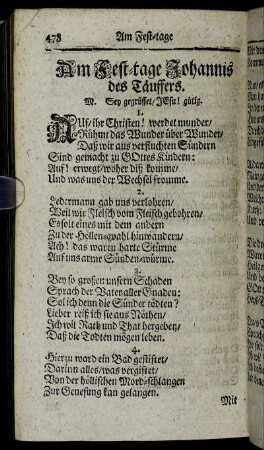 478
Am Fest-tage
Am Fest-tage Johannis
des Täuffers.
M. Sey gegrüsset/ JEsu! gütig.
1.
AUf/ ihr Christen! werdet munder/
Rühmt das Wunder über Wunder/
Daß wir aus verfluchten Sündern
Sind gemacht zu GOttes Kindern:
Auf! erwegt/ woher diß komme/
Und was uns der Wechsel fromme.
2.
Jedermann gab uns verlohren/
Weil wir Fleisch vom Fleisch gebohren/
Es solt eines mit dem andern
Zu der Höllenqvahl hinwandern/
Ach! das waren harte Stürme
Auf uns arme Sünden-würme.
3.
Bey so großen unsern Schaden
Sprach der Vater aller Gnaden:
Sol ich denn die Sünder tödten?
Lieber reiß ich sie aus Nöthen/
Ich wil Rath und That hergeben/
Daß die Todten mögen leben.
4.
Hierzu ward ein Bad gestifftet/
Darinn alles/ was vergifftet/
Von der höllischen Mord-schlangen
Zur Genesung kan gelangen.
Mit